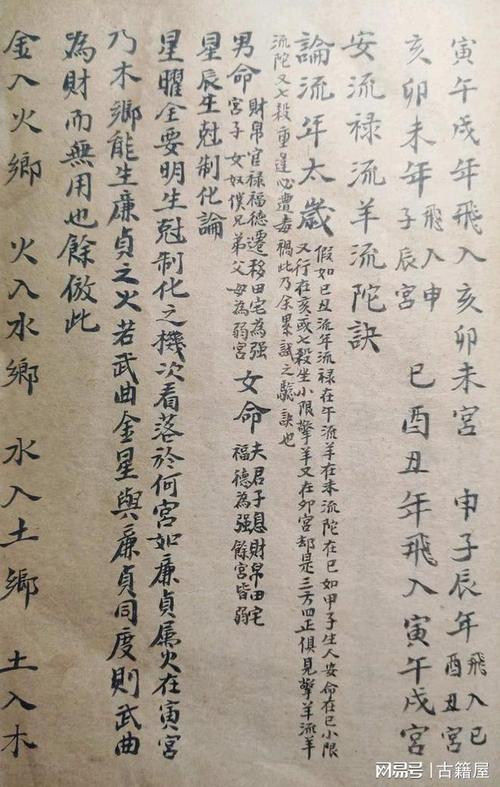 寅午戌年飛入亥卯未宮　申子辰年飛入巳酉丑宮
亥卯未年飛入申子辰宮　巳酉丑年飛入寅午戌宮
安流祿流羊流陀訣
論流年太歲　假如己丑流年流祿在午流羊在未流陀在巳如甲子生人安命在巳小限
又行在亥或七殺坐小限擎羊又在卯宮却是三方四正俱見擎羊流羊
流陀又七殺重逢心遭毒禍此乃余累試之驗訣也
男命　財帛官祿福德遷移田宅為強
宮子女奴僕兄弟父母為弱宮　女命　夫君子息財帛田宅
福德為強餘宮皆弱
星辰生尅制化論
星曜全要明生尅制化之機次看落於何宮如廉貞属火在寅宮
乃木鄉能生廉貞之火若武曲金星與廉貞同度則武曲
為財而無用也餘倣此
金入火鄉　火入水鄉　水入土鄉　土入木
網易号|古籍屋